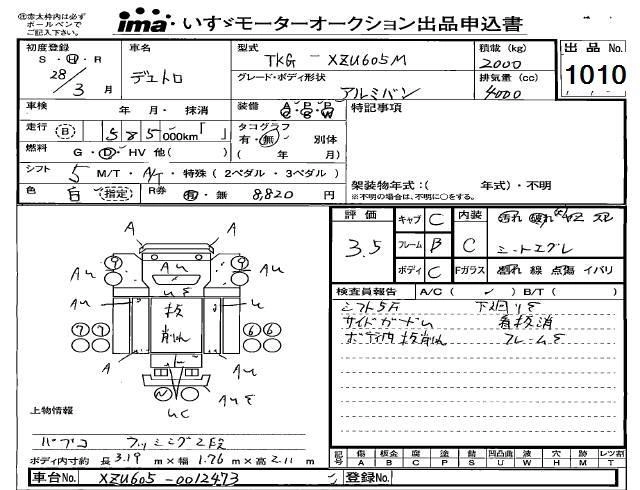 ㊟赤太枠内は必ず
ボールペンで
ご記入下さい。
ima いすゞモーターオークション出品申込書
初度登録 S・H・R 28/3月
車名 デュトロ
型式 TKG-XZU605M
グレード・ボディ形状 アルミバン
積載(kg) 2000
排気量(cc) 4000
出品No. 1010
車検 年 月・抹消
装備 A/C P/S P/W
特記事項
走行 (B) 585,000km「 」
タコグラフ 有・無 別体
( 年 月)
燃料 G・D・HV 他( )
シフト 5 M/T・A/T・特殊(2ペダル・3ペダル)
色 白(指定) R券 有・無 8,820円
架装物年式:( 年式)・不明
※不明の場合は、不明に○をする。
評価 3.5
キャブ C
フレーム B
ボディ C
内装 C
汚れ 破れ コゲ スレ
シートエグレ
Fガラス 飛石 線 点傷 イバリ
検査員報告 A/C( ✓ ) B/T( )
シフト5F 下廻りE
サイドガードU 看板消
ボデー内板削れ フレームE
A A
9 9
AU AU AU
UE
U
板
削れ
7 7 6 6
A AU
N
AUE
UC
上物情報
パブコ ラッシング2段
ボディ内寸約 長 3.19 m×幅 1.76 m×高 2.11 m
記号 傷 A 板金 B 腐 C 塗 P 錆 S 凹凸曲 U 波 W 穴 H 跡 M レツ割 T
車台No. XZU605-0012473
登録No.